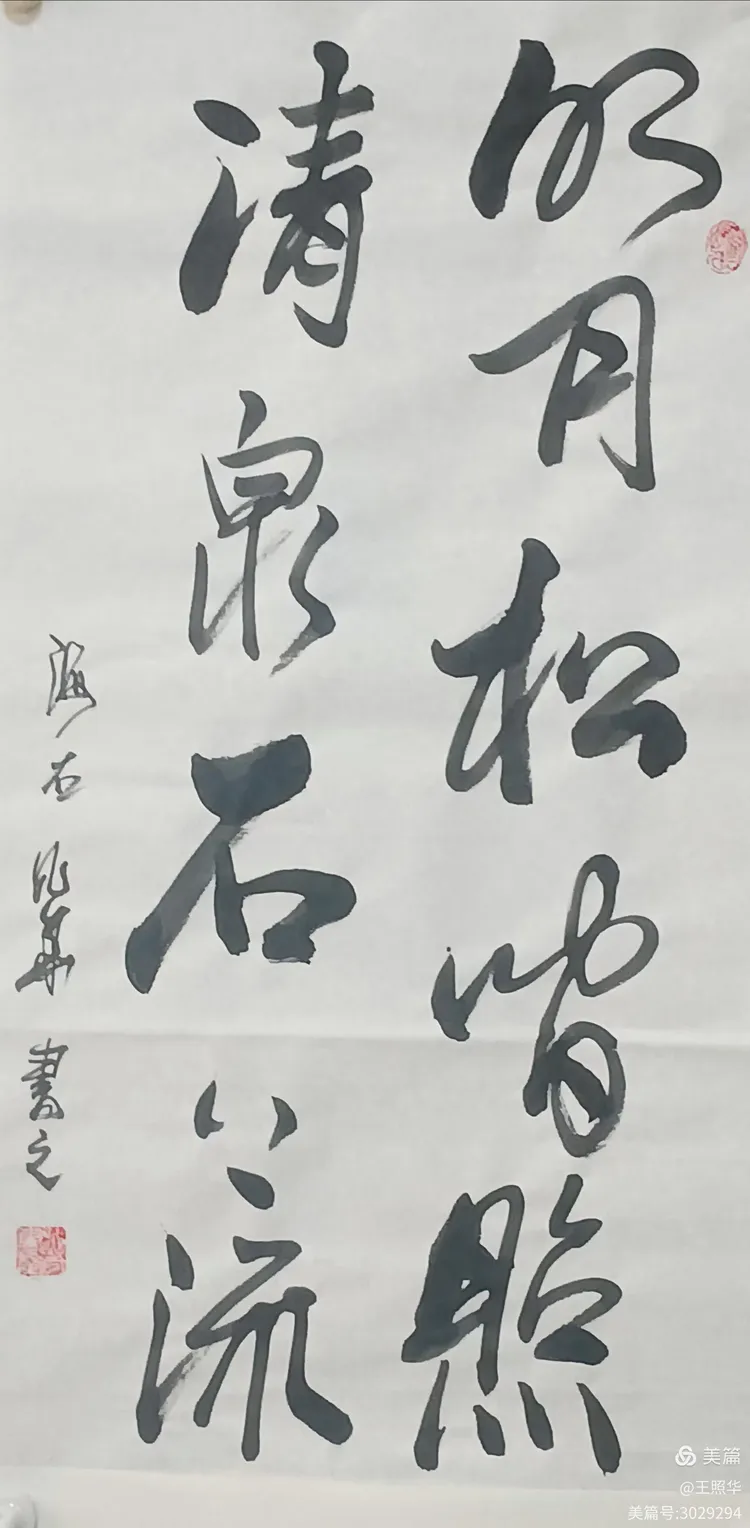 明月松間照
清泉石上流
海石 華書之
美篇
@王照华
美篇号:3029294